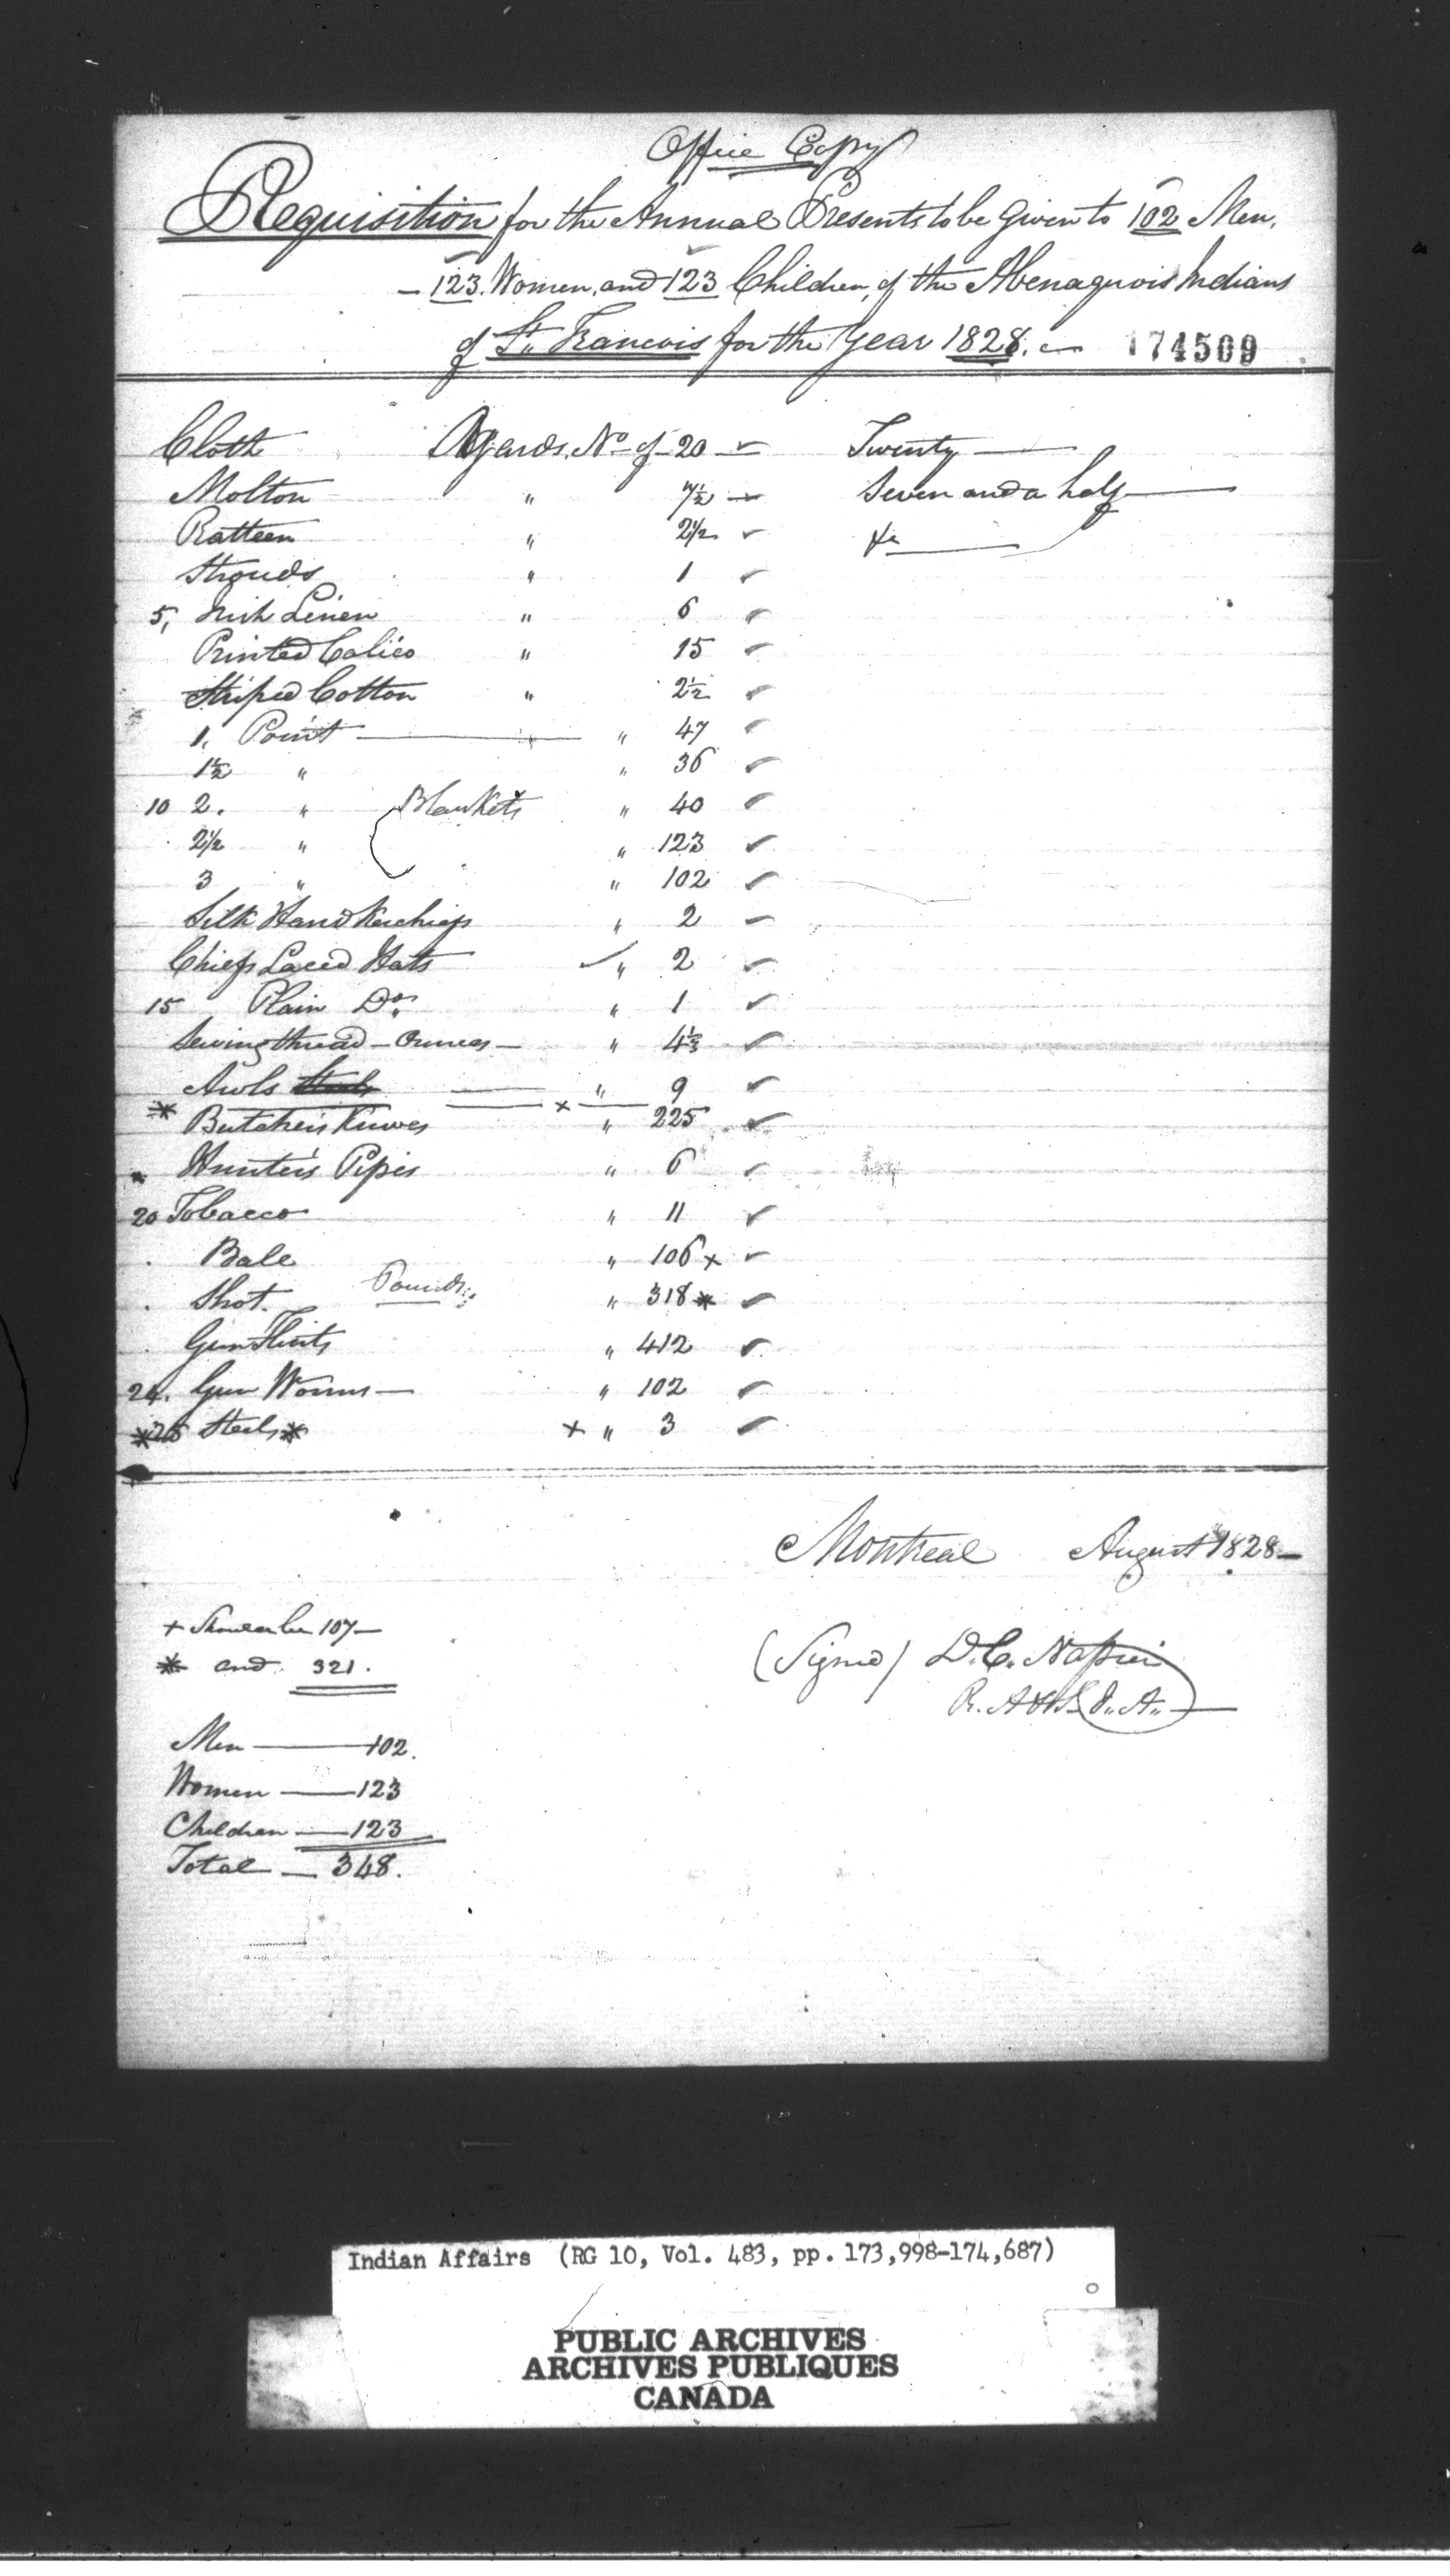 Office Copy
Requisition for the Annual Presents to be given to 102 Men,
– 123. Women, and 123 Children, of the Abenaquois Indians
of St. Francois for the Year 1828. 174509
Cloth Yards. No. of 20 ✓ Twenty —
Molton " 7½ — Seven and a half —
Ratteen " 2½ ✓ &c —
Strouds " 1 ✓
5, Irish Linen " 6 ✓
Printed Calico " 15 ✓
Striped Cotton " 2½ ✓
1. Point — " 47 ✓
1½ " " 36 ✓
10 2. " Blankets " 40 ✓
2½ " " 123 ✓
3 " " 102 ✓
Silk Handkerchiefs " 2 –
Chiefs Laced Hats ✓ " 2 ✓
15 Plain Do. " 1 ✓
Sewing thread – Ounces – " 4⅓ ✓
Awls — " 9 ✓
* Butcher's Knives — x — " 225 ✓
Hunter's Pipes " 6 ✓
20 Tobacco " 11 ✓
Bale " 106 x ✓
Shot. Pounds " 318 * ✓
Gun Flints " 412 ✓
24. Gun Worms — " 102 ✓
*25 Steels * x " 3 ✓
Montreal August 1828 –
+ Should be 107 –
* and 321.
(Signed) D. C. Napier
R. A & S. I. A. —
Men — 102.
Women — 123
Children — 123
Total — 348.
Indian Affairs (RG 10, Vol. 483, pp. 173,998-174,687)
PUBLIC ARCHIVES
ARCHIVES PUBLIQUES
CANADA